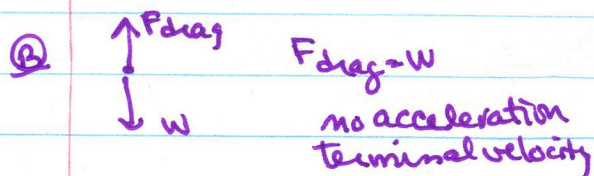 Fdrag
B
Fdrag=W
W
no acceleration
terminal velocity